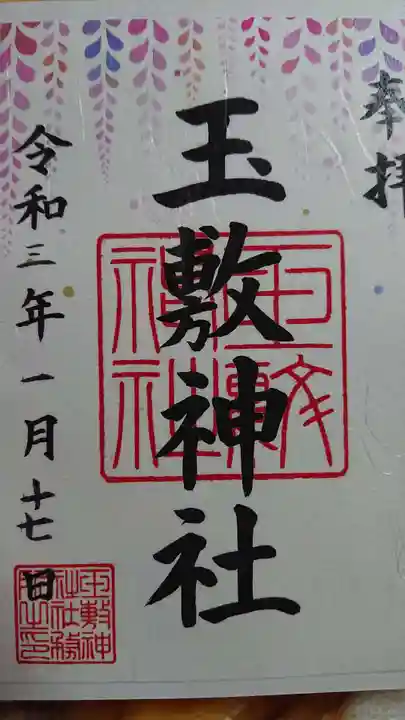 奉拝
玉敷神社
令和三年一月十七日
玉敷神社
玉敷神社社務所之印